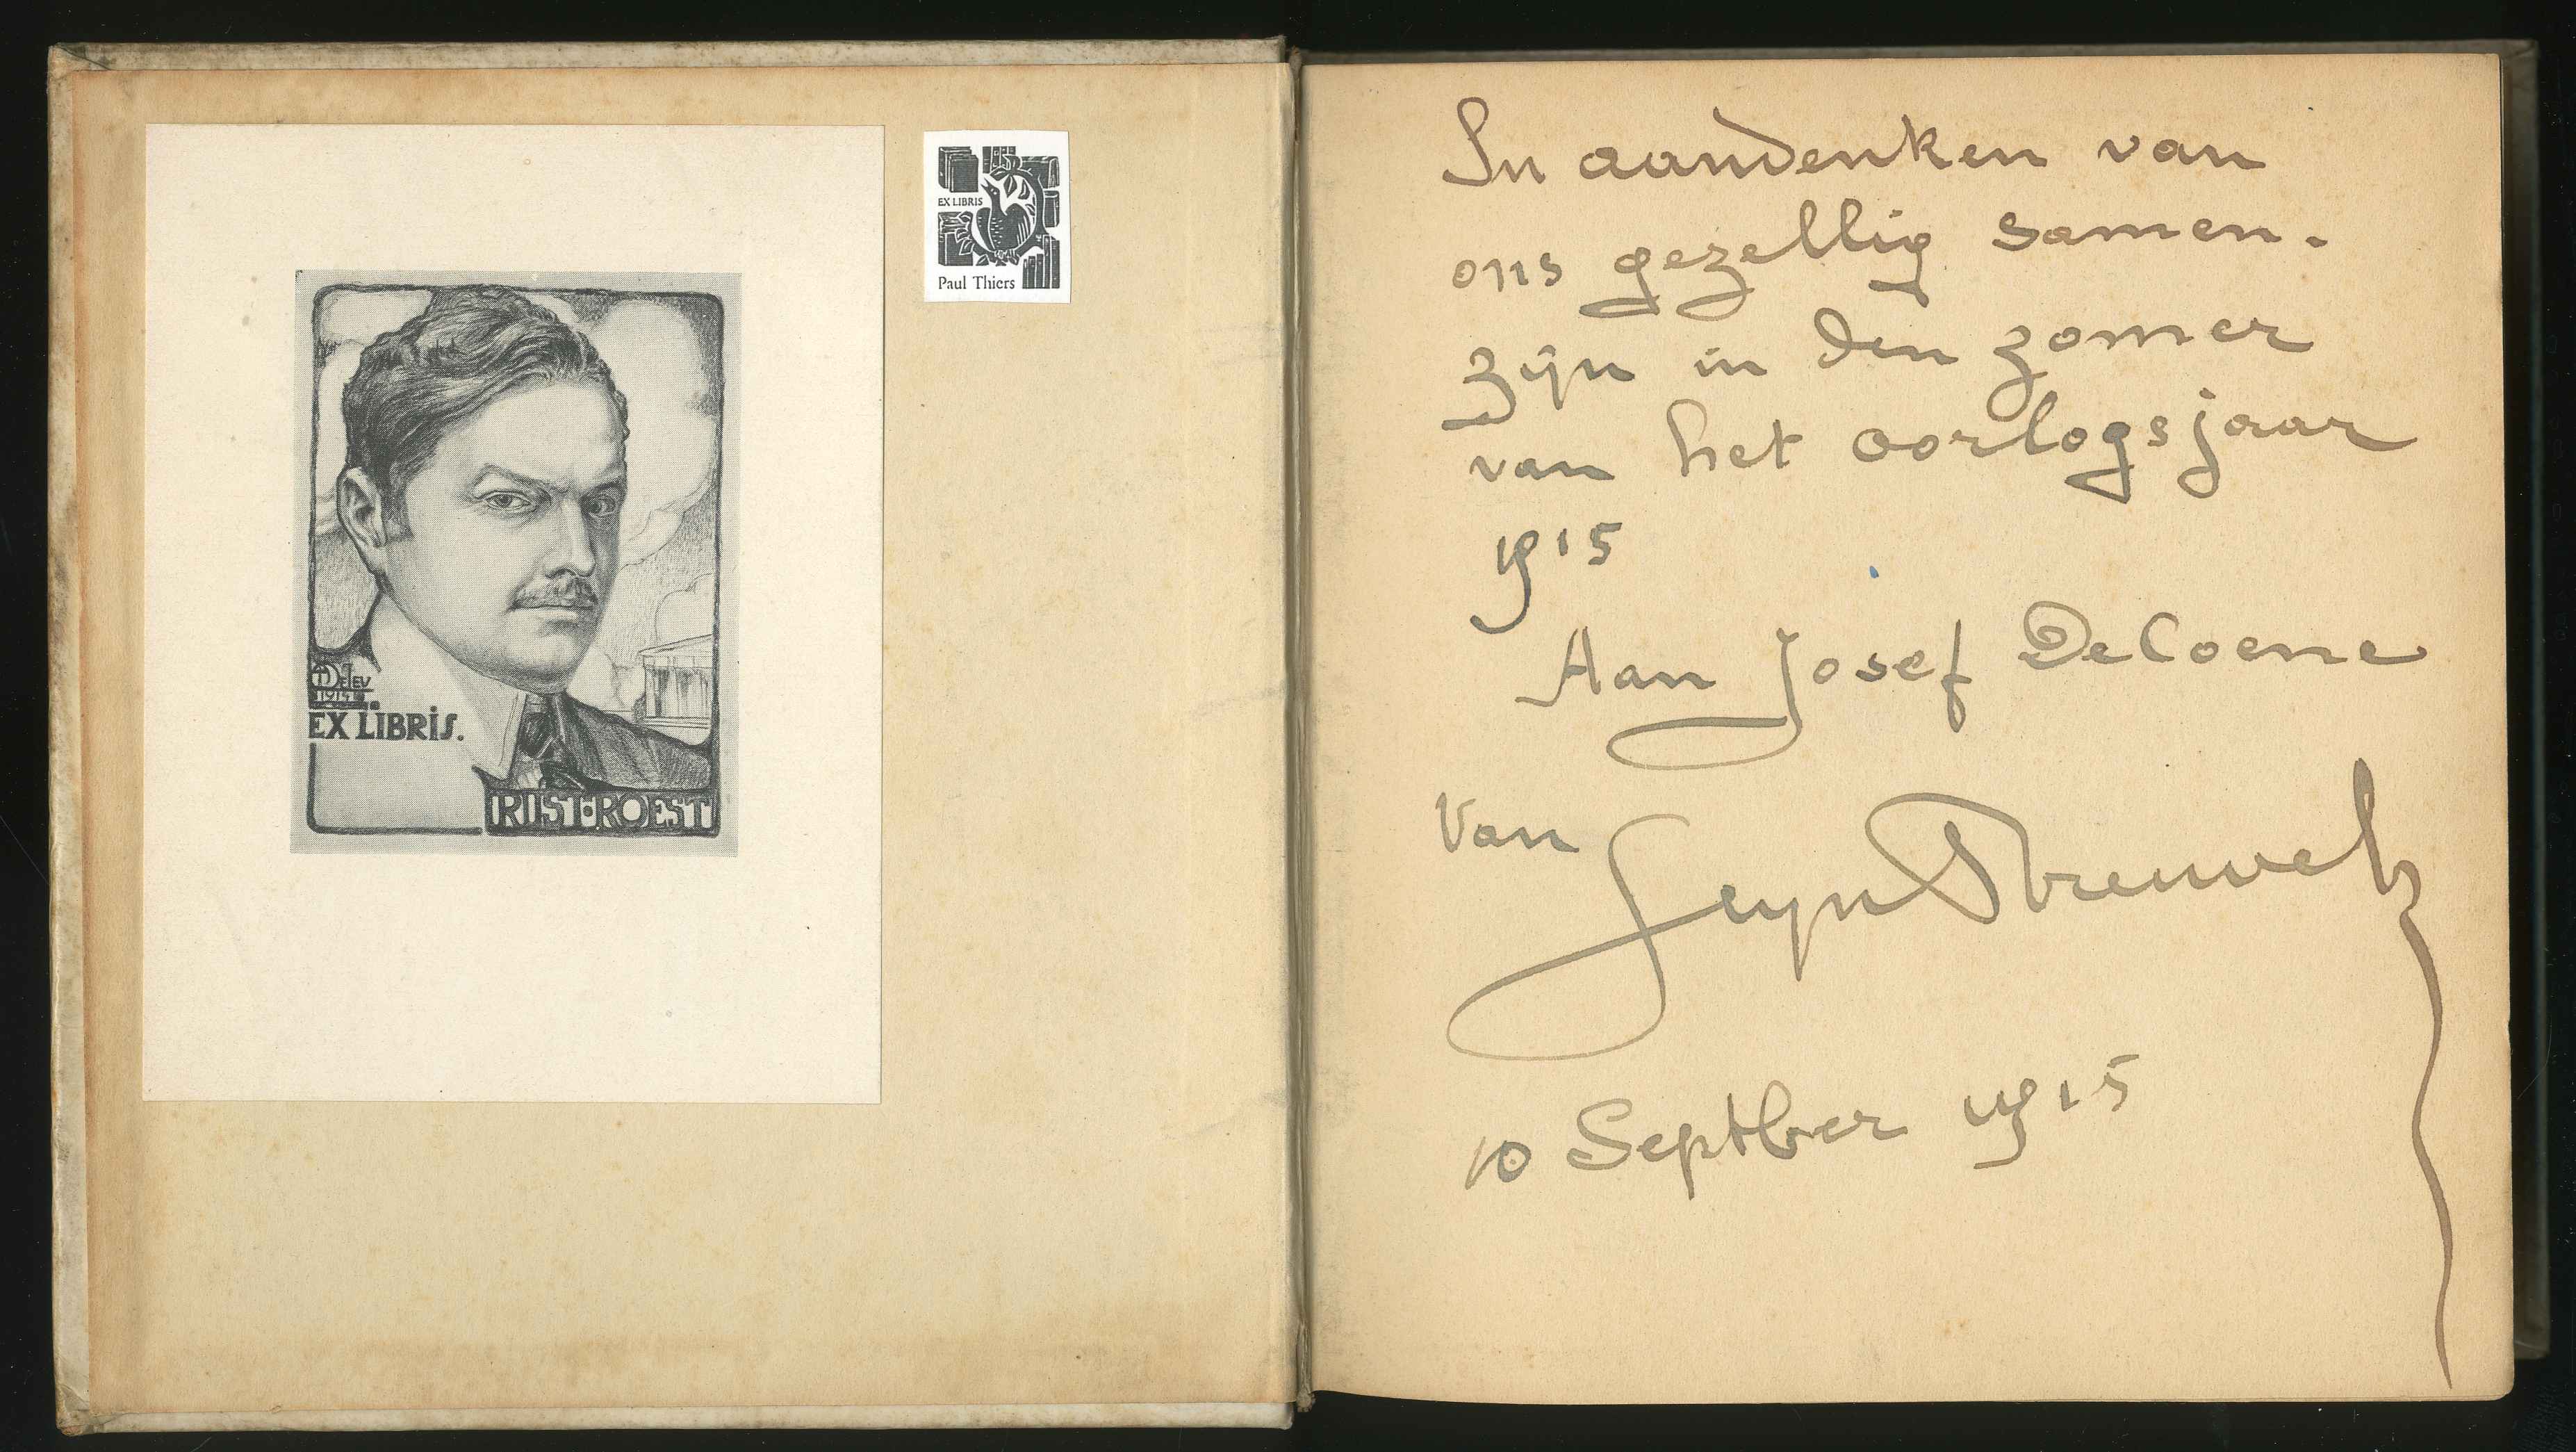 EX LIBRIS.
RIST:ROEST
EX LIBRIS
Paul Thiers
In aandenken van
ons gezellig samen-
zijn in den zomer
van het oorlogsjaar
1915
Aan Josef DeCoene
Van Stijn Streuvels
10 Septber 1915